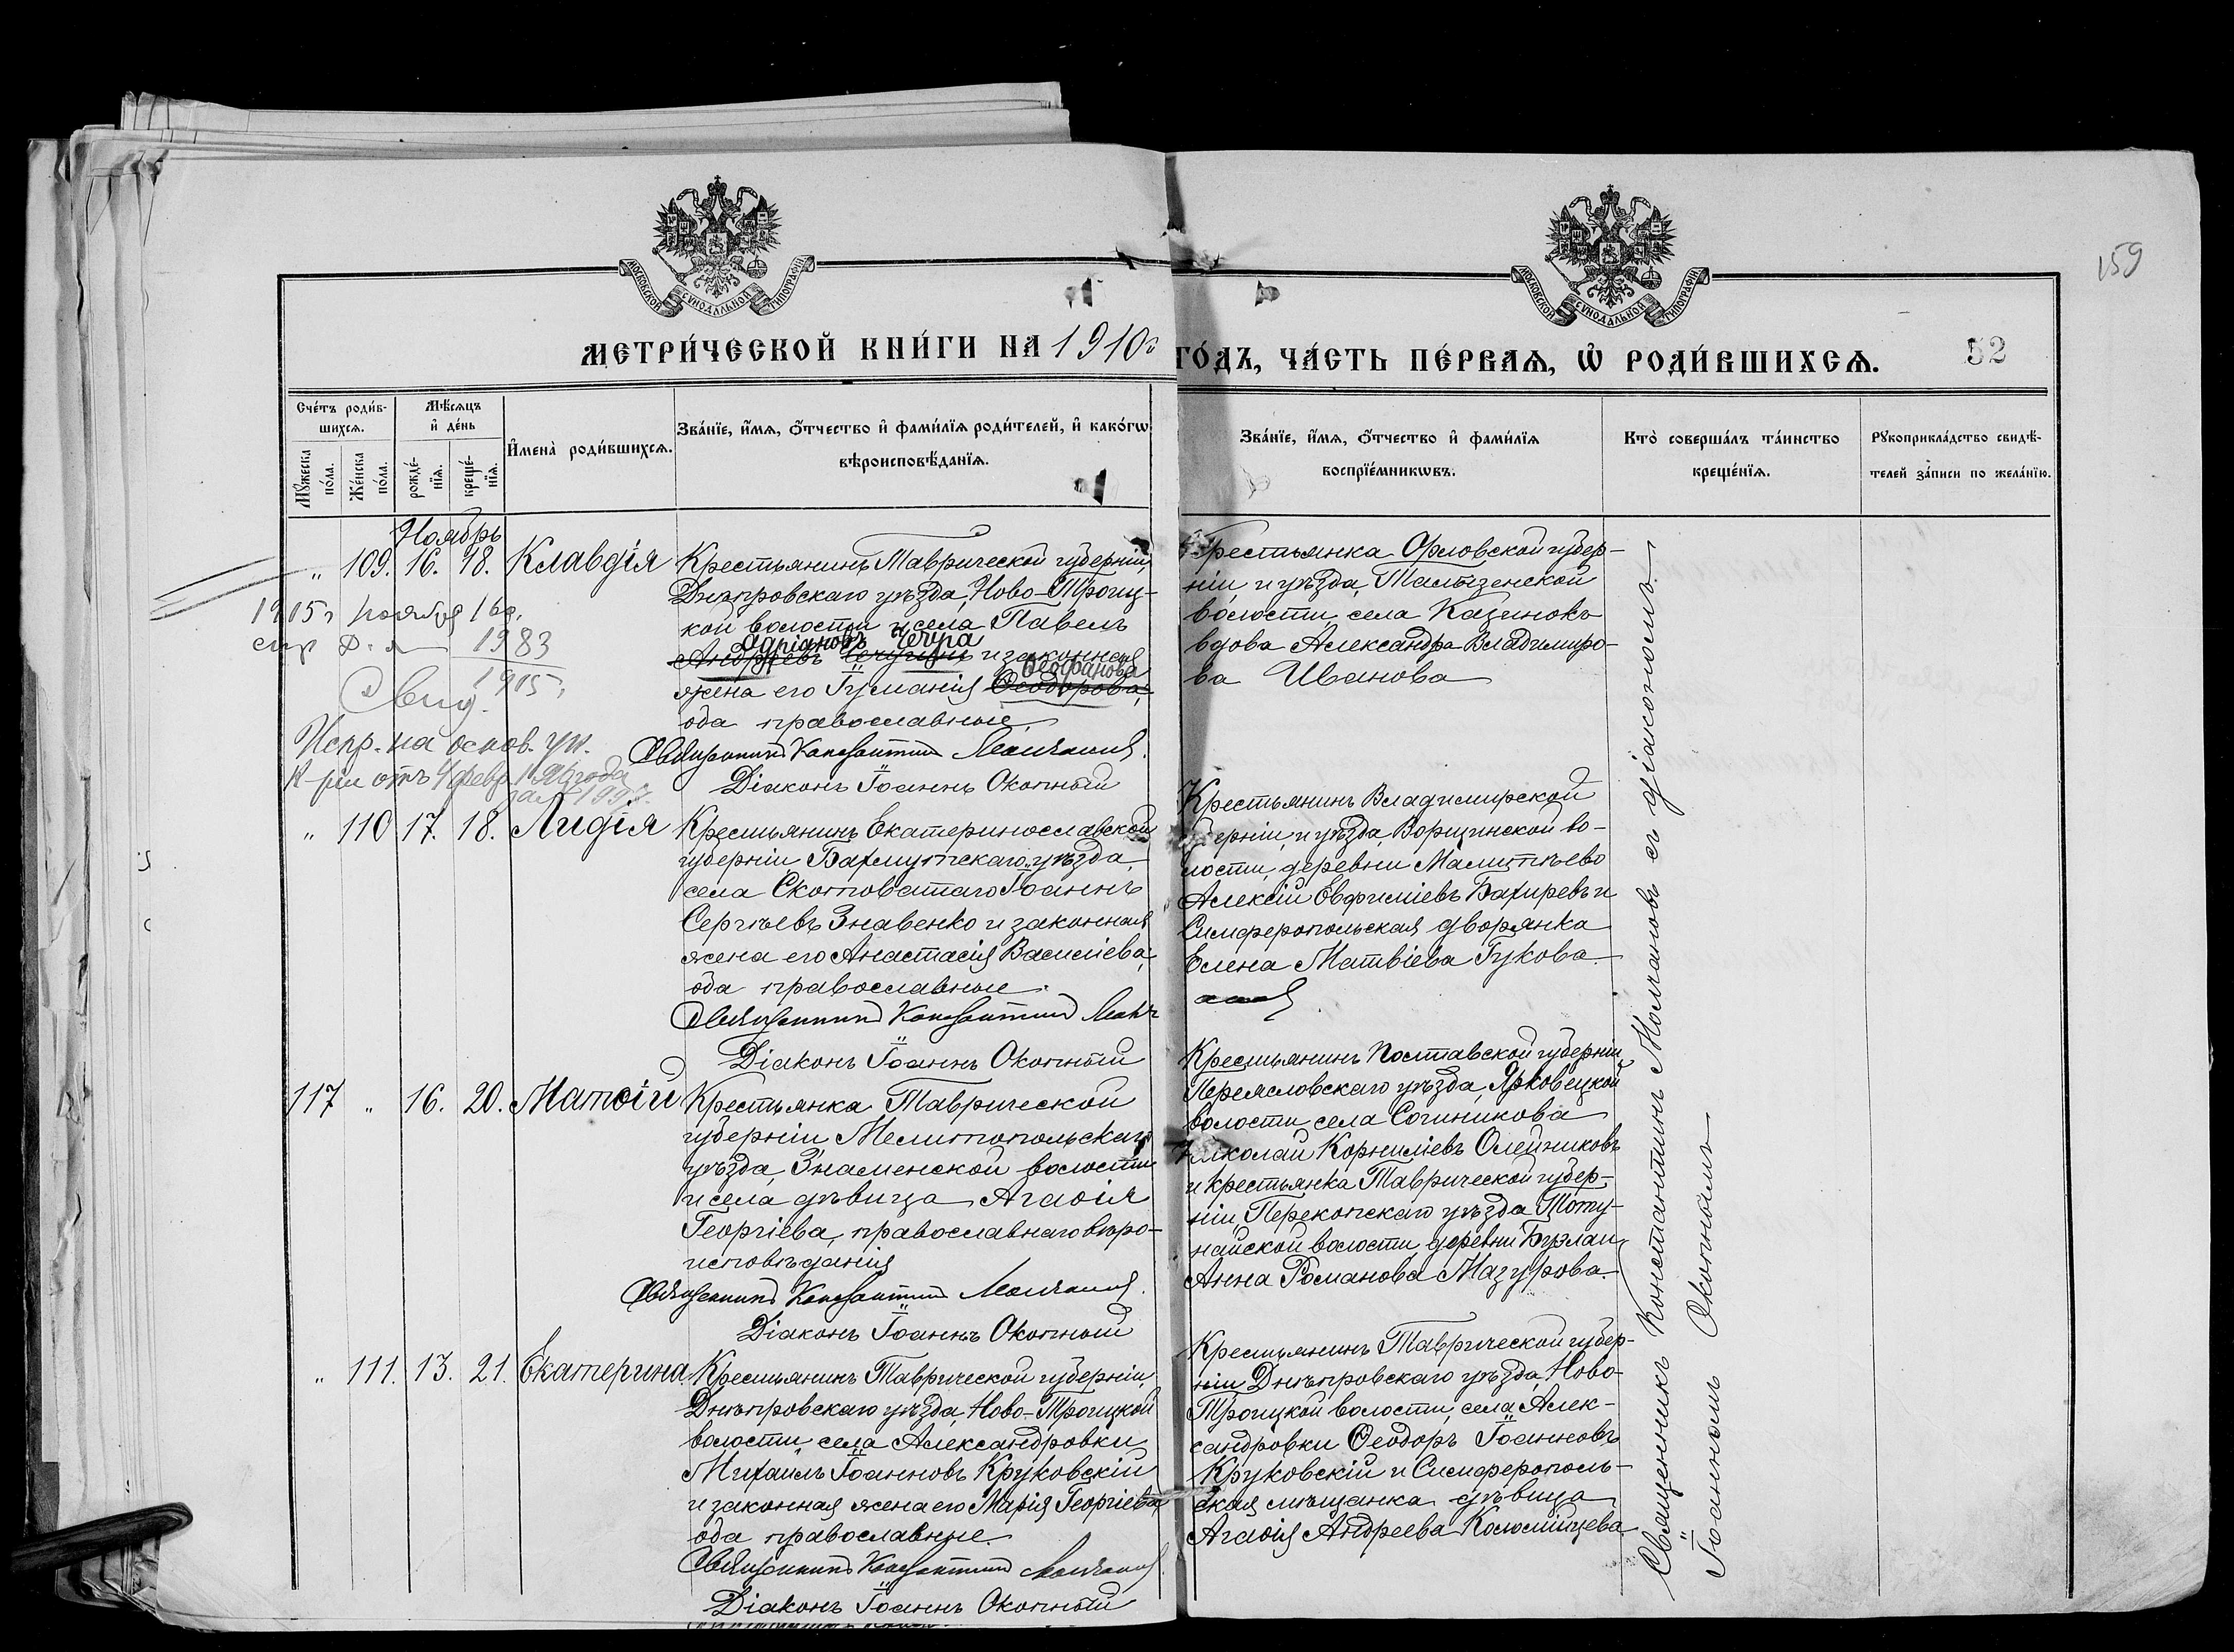 159
МОСКОВСКОЙ СУНОДАЛЬНОЙ ТИПОГРАФІИ
МОСКОВСКОЙ СУНОДАЛЬНОЙ ТИПОГРАФІИ
МЕТРИ́ЧЕСКОЙ КНИ́ГИ НА 1910
ГО́ДЪ, ЧА́СТЬ ПЕ́РВАѦ, Ѡ҆ РОДИ́ВШИХСѦ.
52
Сче́тъ роди́в-
шихсѧ.
Мꙋ́жеска по́ла.
Же́нска по́ла.
Мѣ́сѧцъ
и҆ де́нь
рожде́-
нїѧ.
креще́-
нїѧ.
И҆мена̀ роди́вшихсѧ.
Зва́нїе, и҆́мѧ, ѻ҆́тчество и҆ фами́лїѧ роди́телей, и҆ како́гѡ
вѣроисповѣ́данїѧ.
Зва́нїе, и҆́мѧ, ѻ҆́тчество и҆ фами́лїѧ
воспрїе́мникѡвъ.
Кто̀ соверша́лъ та́инство
креще́нїѧ.
Рꙋкоприкла́дство свидѣ́-
телей за́писи по жела́нїю.
Ноябрь
" 109. 16. 18. Клавдія
Крестьянинъ Таврической губерніи,
Днѣпровскаго уѣзда, Ново-Троиц-
кой волости и села Павелъ
Адріановъ Чечура
Андреевъ и законная
Ѳеофанова
жена его Ѳеодорова,
оба православные.
Священникъ Константинъ Молчановъ.
Діаконъ Іоаннъ Окопный
Крестьянка Орловской губер-
ніи, и уѣзда,
волости, села Казинокъ
вдова Александра Владимиро-
ва Иванова
1915 ноября
1983
1915
Свид.
Испр. на основ. ук.
К-ріи отъ 4 февр. года
" 110 17. 18. Лидія
Крестьянинъ Екатеринославской
губерніи Бахмутскаго уѣзда,
села Скотоватаго Іоаннъ
Сергѣевъ Знавенко и законная
жена его Анастасія Василіева,
оба православные.
Священникъ Константинъ Молч
Діаконъ Іоаннъ Окопный
Крестьянинъ Владимирской
губерніи, и уѣзда, Ворщинской во-
лости, деревни
Алексій Евфиміевъ Бахиревъ и
Симферопольская дворянка
Елена Матвіева Гукова.
117 " 16. 20. Матѳій
Крестьянка Таврической
губерніи Мелитопольскаго
уѣзда, Знаменской волости
и села дѣвица Агаѳія
Георгіева, православнаго вѣро-
исповѣданія
Священникъ Константинъ Молчановъ.
Діаконъ Іоаннъ Окопный
Крестьянинъ Полтавской губерніи,
Переясловскаго уѣзда,
волости села Сошникова
Николай Корниліевъ Олейниковъ
и крестьянка Таврической губер-
ніи, Перекопскаго уѣзда Тоту-
найской волости, деревни
Анна Романова Мазурова.
" 111. 13. 21. Екатерина
Крестьянинъ Таврической губерніи,
Днѣпровскаго уѣзда, Ново-Троицкой
волости, села Александровки
Михаилъ Іоанновъ Круковскій
и законная жена его Марія Георгіева,
оба православные.
Священникъ Константинъ Молчановъ.
Діаконъ Іоаннъ Окопный
Крестьянинъ Таврической губер-
ніи Днѣпровскаго уѣзда, Ново-
Троицкой волости, села Алек-
сандровки Ѳеодоръ Іоанновъ
Круковскій и Симферополь-
ская мѣщанка дѣвица
Агаѳія Андреева Коломійцева.
Священникъ Константинъ Молчановъ съ діакономъ
Іоанномъ Окопнымъ